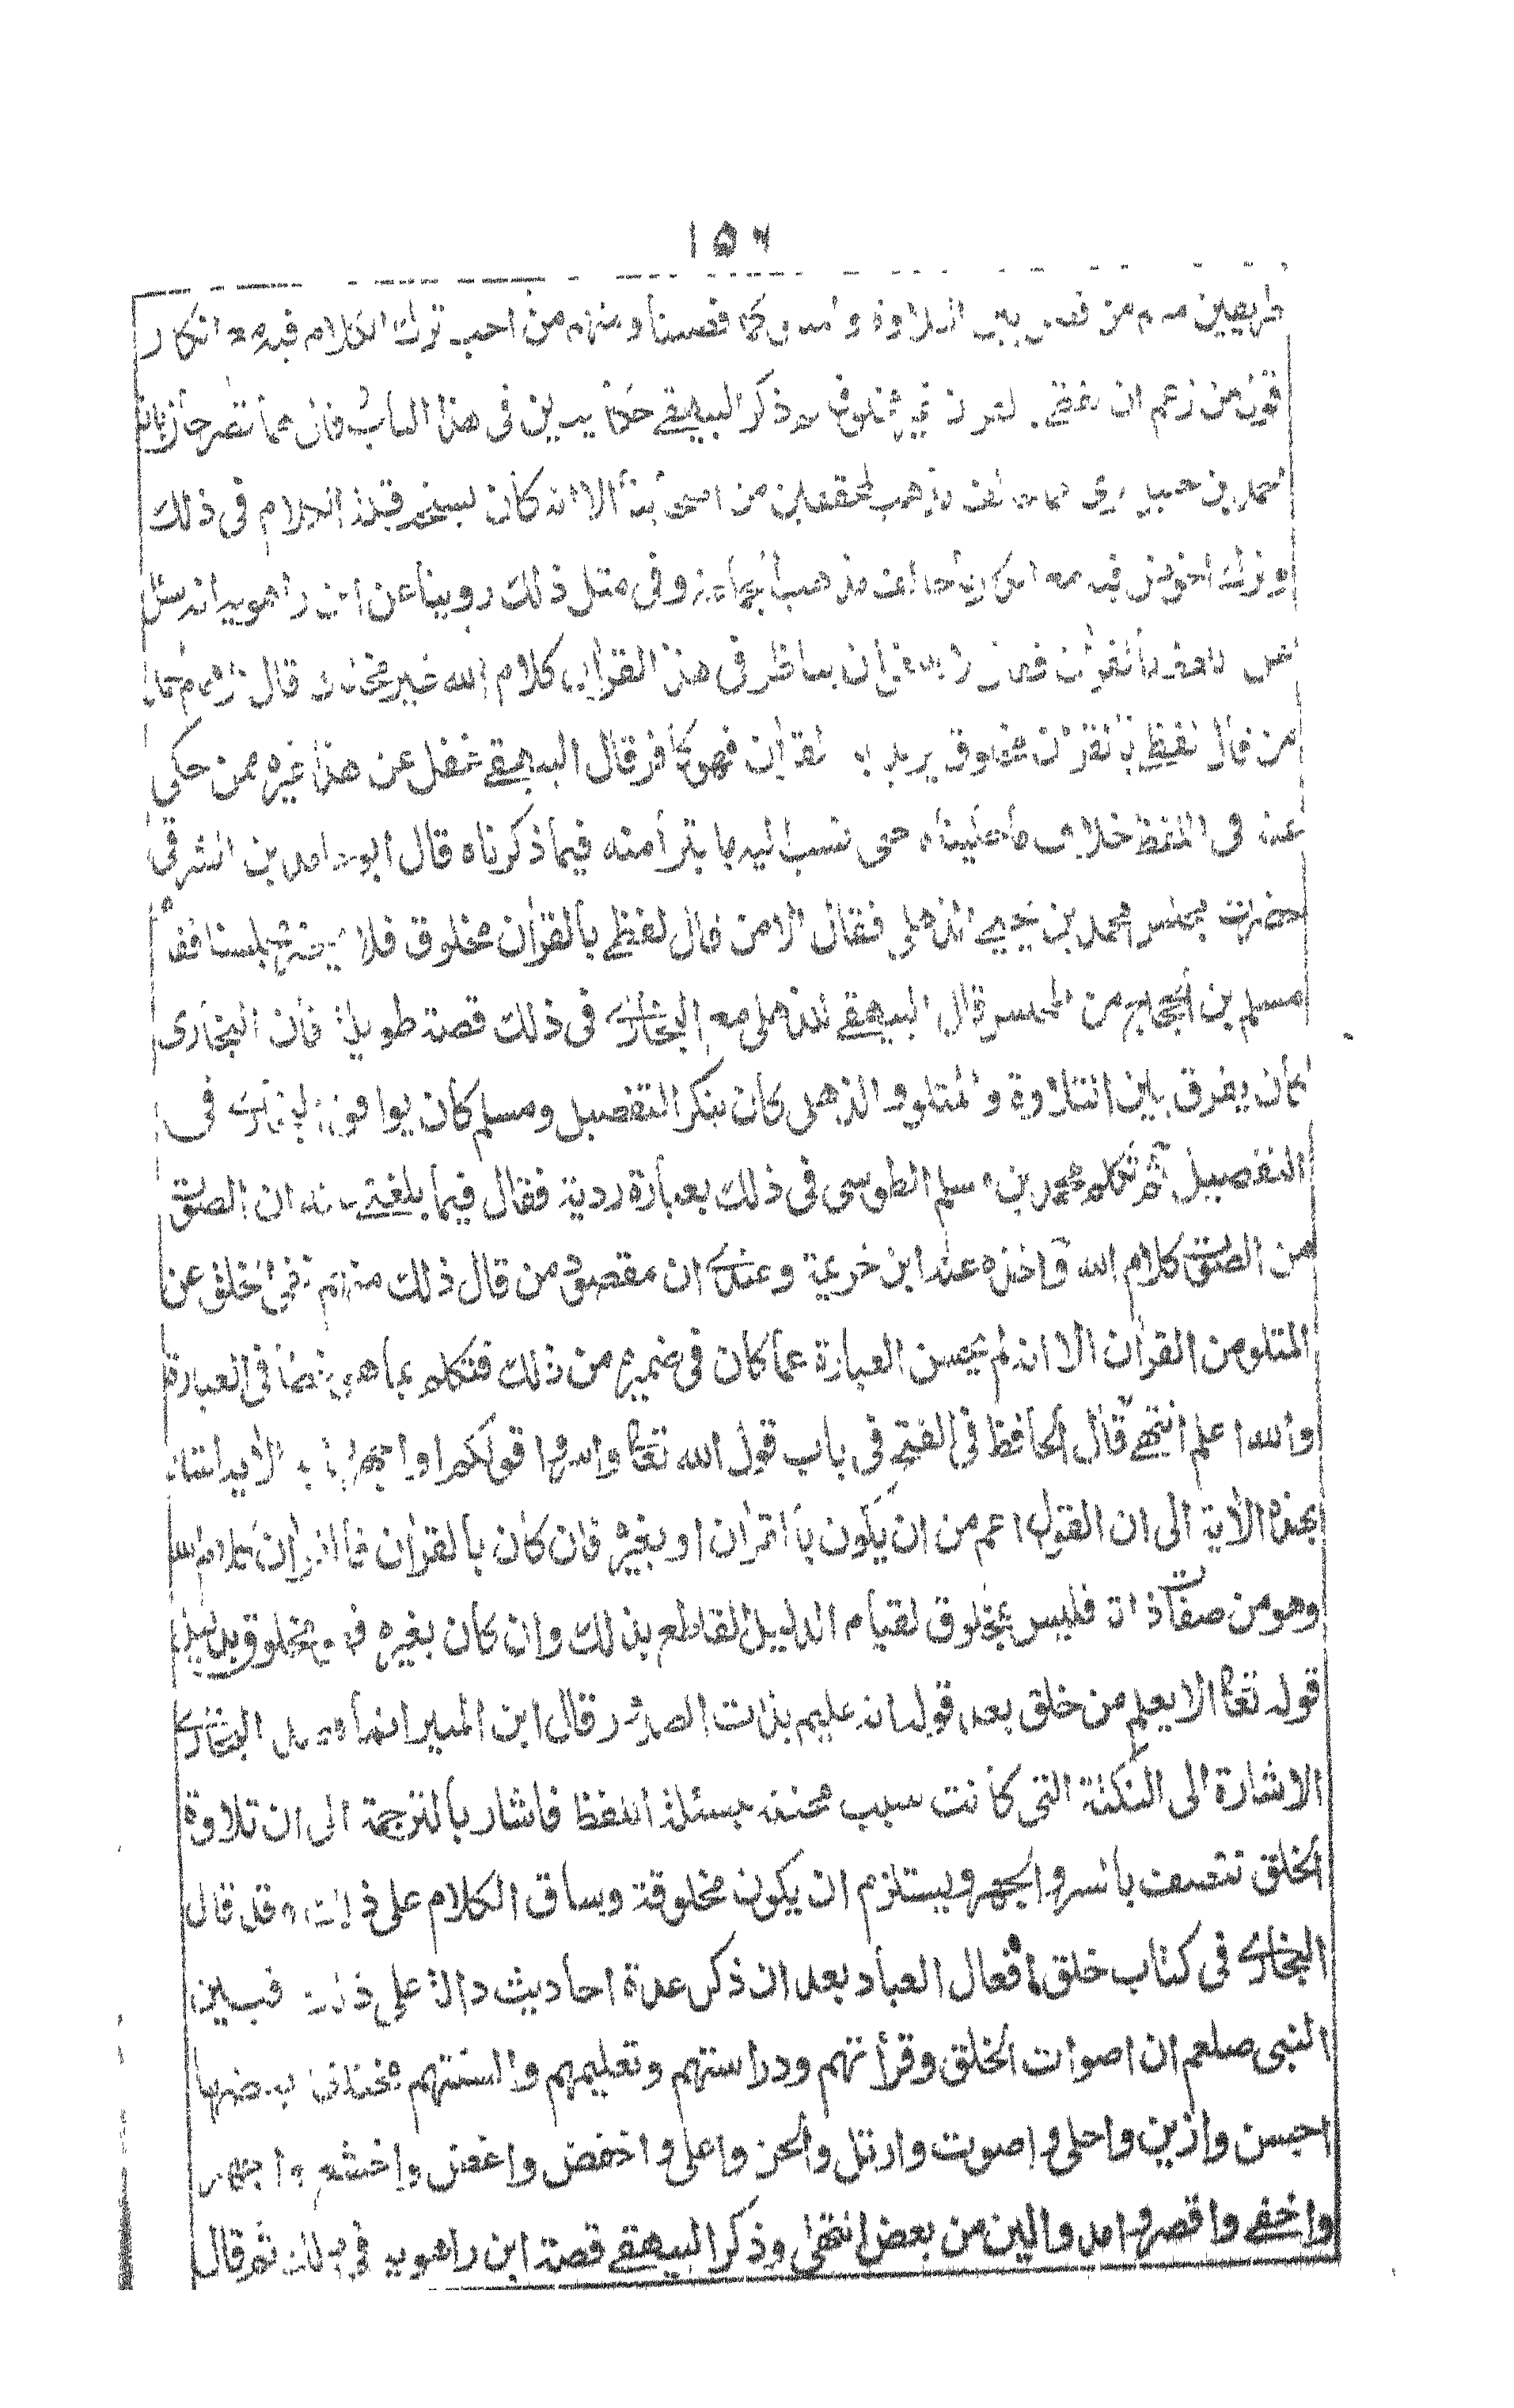 ١٥٦
طريقين منهم من فصل بين التلاوة والمتلو كما فصلنا ومنهم من احب ترك الكلام فيه مع انكار
قول من زعم ان لفظي بالقرآن غير مخلوق ثم ذكر البيهقي حكايتين في هذا الباب
محمد بن حنبل مذهب المحققين من اصحابنا الا انه كان يستحب قلة الكلام في ذلك
وترك الخوض فيه مع انكار ما خالف مذهب الجماعة وفي مثل ذلك روينا عن ابن راهويه انه سئل
عن اللفظ بالقرآن فقال لا ينبغي ان يناظر في هذا القرآن كلام الله غير مخلوق قال
من قال لفظي بالقرآن مخلوق يريد به القرآن فهو كافر قال البيهقي غفل عن هذا غيره ممن حكى
عنه في اللفظ خلاف ما حكيناه حتى نسب اليه ما يتبرأ منه فيما ذكرناه قال ابو حامد بن الشرقي
حضرت مجلس محمد بن يحيى الذهلي فقال الا من قال لفظي بالقرآن مخلوق فلا يحضر مجلسنا فقام
مسلم بن الحجاج من المجلس قال البيهقي للذهلي مع البخاري في ذلك قصة طويلة فان البخاري
كان يفرق بين التلاوة والمتلو والذهلي كان ينكر التفصيل ومسلم كان يوافق البخاري في
التفصيل ثم تكلم محمد بن اسلم الطوسي في ذلك بعبارة ردية فقال فيما بلغني عنه ان الصوت
من المصوت كلام الله واخذه عنه ابن خزيمة وعندي ان مقصود من قال ذلك منهم نفي الخلق عن
المتلو من القرآن الا انه لم يحسن العبارة عما كان في ضميره من ذلك فتكلم بما هو خطأ في العبارة
والله اعلم انتهى قال الحافظ في الفتح في باب قول الله تعالى واسروا قولكم او اجهروا به الآية اشار
بهذه الآية الى ان القول اعم من ان يكون بالقرآن او بغيره فان كان بالقرآن فالقرآن كلام الله
وهو من صفات ذاته فليس بمخلوق لقيام الدليل القاطع بذلك وان كان بغيره فهو مخلوق بدليل
قوله تعالى الا يعلم من خلق بعد قوله انه عليم بذات الصدور قال ابن المنير انما قصد البخاري
الاشارة الى النكتة التي كانت سبب محنته بمسئلة اللفظ فاشار بالترجمة الى ان تلاوة
الخلق تتصف بالسر والجهر ويستلزم ان يكون مخلوقة وساق الكلام على ذلك وقد قال
البخاري في كتاب خلق افعال العباد بعد ان ذكر عدة احاديث دالة على ذلك فبين
النبي صلعم ان اصوات الخلق وقرأتهم ودراستهم وتعليمهم والسنتهم مختلفة بعضها
احسن وازين واحلى واصوت وارتل والحن واعلى واخفض واغض واخشع واجهر
واخفى واقصر وامد والين من بعض انتهى وذكر البيهقي قصة ابن راهويه في ذلك ثم قال